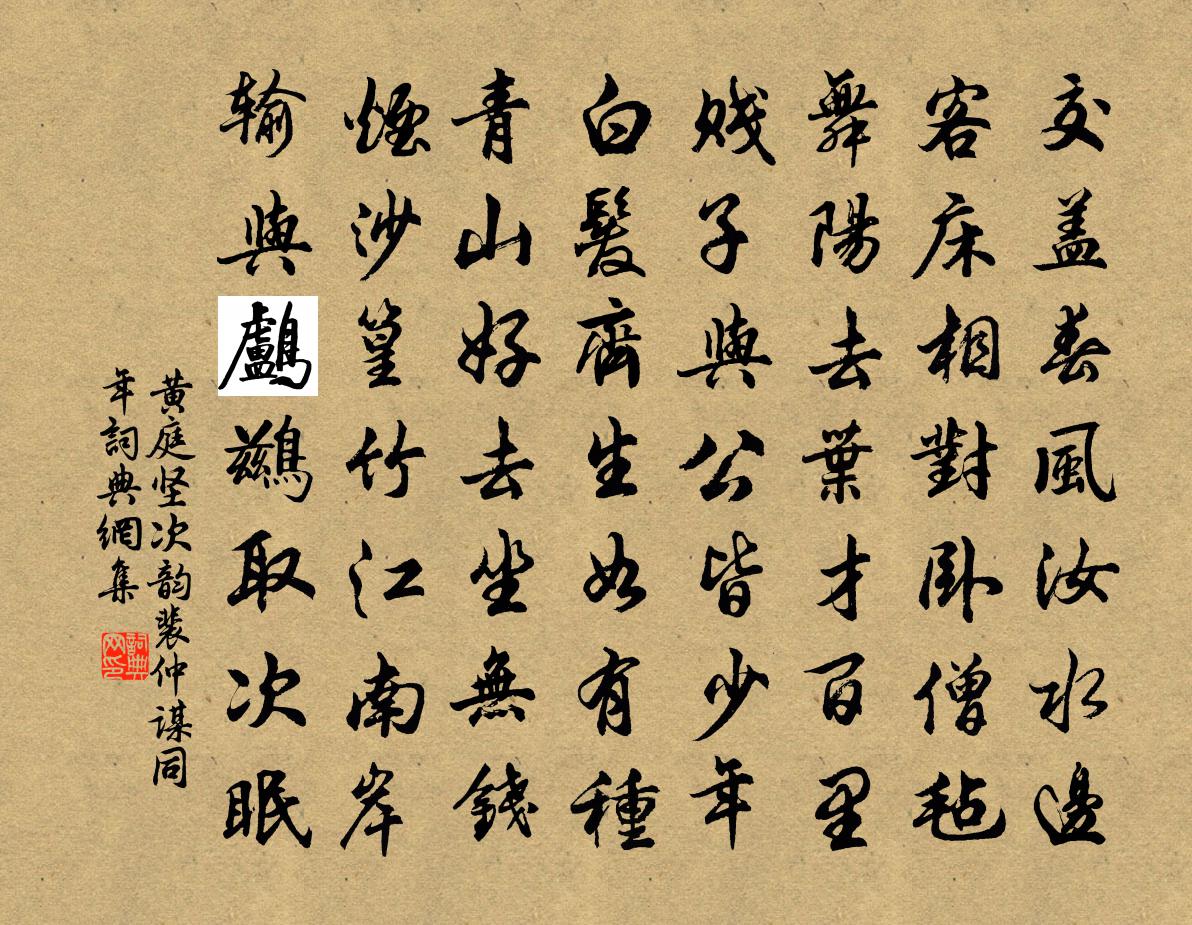 交盖春風汝水邊
客床相對卧僧毡
舞陽去葉才百里
賤子與公皆少年
白髮齊生如有種
青山好去坐無錢
煙沙篁竹江南岸
输與鸕鷀取次眠
黄庭坚次韵裴仲谋同
年詞典網集
詞典网印